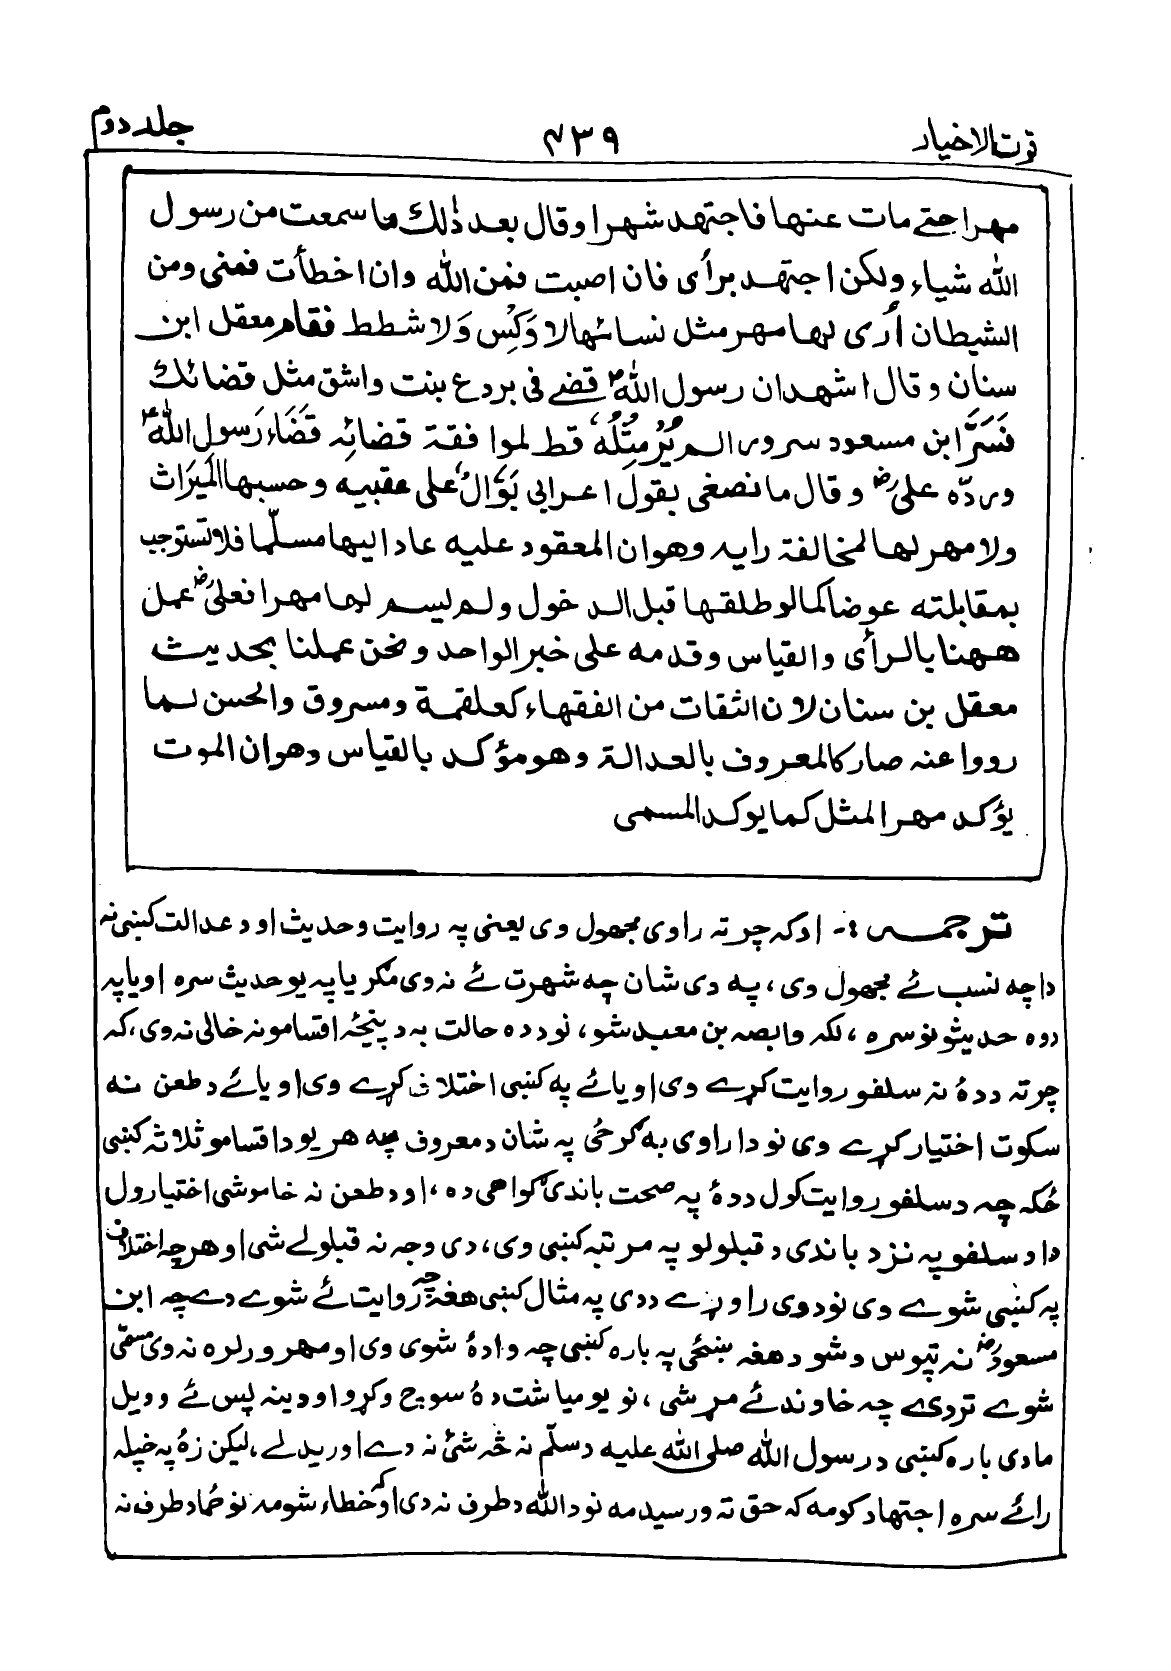 قوت الاخيار ۴۳۹ جلد دوم
مهرا حتے مات عنها فاجتهد شهرا وقال بعد ذٰلك ما سمعت من رسول
الله شياء ولكن اجتهد برأى فان اصبت فمن الله وان اخطأت فمنى ومن
الشيطان أرى لها مهر مثل نسائها لا وَكَس وَلا شطط فقام معقل ابن
سنان وقال اشهد ان رسول الله قضے فى بردع بنت واشق مثل قضائك
فَسَرَّ ابن مسعود سرورا لم يُرَ مِثلُهٗ قط لموافقة قضائِه قَضَاء رَسولِ الله
ورده علىؓ وقال ما نصغى بقول اعرابى بَوَّالٌ على عقبيه وحسبها الميراث
ولا مهر لها لمخالفة رايه وهوان المعقود عليه عاد اليها مسلّما فلا تستوجب
بمقابلته عوضا كما لو طلقها قبل الدخول ولم يسم لها مهرا فعلىؓ عمل
ههنا بالرأى والقياس وقدمه على خبر الواحد ونحن عملنا بحديث
معقل بن سنان لان الثقات من الفقهاء كعلقمة ومسروق والحسن لما
رووا عنه صار كالمعروف بالعدالة وهو مؤكد بالقياس وهوان الموت
يؤكد مهر المثل كما يوكد المسمى
ترجمه :- اوكه چرته راوى مجهول وى يعنى په روايت وحديث او د عدالت كښى نه
دا چه نسب ئے مجهول وى، په دى شان چه شهرت ئے نه وى مگر يا په يو حديث سره او يا په
دوه حديثونو سره، لكه وابصه بن معبد شو، نو دده حالت به د پنځه اقسامو نه خالى نه وى، كه
چرته ددهٔ نه سلفو روايت كړے وى او يا ئے په كښى اختلاف كړے وى او يا ئے د طعن نه
سكوت اختيار كړے وى نو دا راوى به گرځى په شان د معروف په هر يو د اقسامو ثلاثه كښى
ځكه چه د سلفو روايت كول ددهٔ په صحت باندى گواهى ده، او د طعن نه خاموشى اختيارول
دا د سلفو په نزد باندى د قبلولو په مرتبه كښى وى، دى وجه نه قبولے شى او هر چه اختلاف
په كښى شوے وى نو دوى راوړے ددى په مثال كښى هغه چه روايت ئے شوے دے چه ابن
مسعودؓ نه تپوس وشو د هغه ښځى په باره كښى چه وادهٔ شوى وى او مهر ورلره نه وى مسمّى
شوے تردى چه خاوند ئے مړ شى، نو يو مياشت دهٔ سوچ وكړو او دينه پس ئے وويل
ما دى باره كښى د رسول الله صلى الله عليه وسلّم نه څه شئ نه دے اوريدلے، ليكن زهٔ په خپله
رائے سره اجتهاد كومه كه حق ته ورسيدمه نو د الله د طرف نه دى او كه خطاء شومه نو ځما د طرف نه